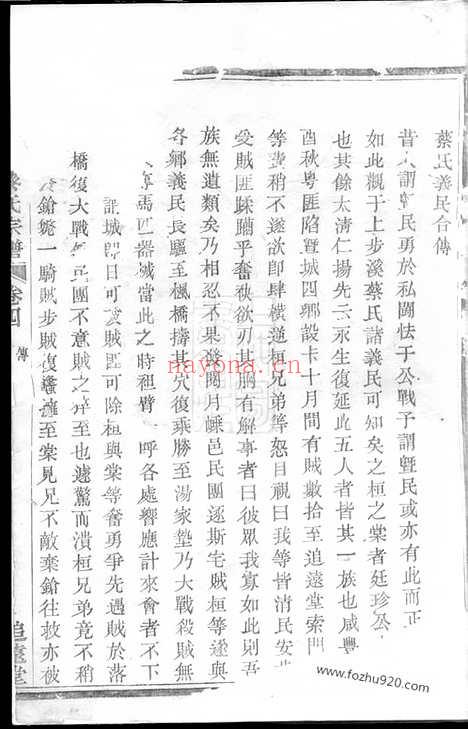 蔡氏義民合傳
昔人謂民勇於私鬪怯于公戰予謂暨民或亦有此而正
如此觀于上步溪蔡氏諸義民可知矣之桓之棠者廷珍公
也其餘太清仁揚先永生復延此五人者皆其一族也咸豐
酉秋粵匪陷暨城四鄉設卡十月間有賊數拾至追遠堂索門
等費稍不滿欲即肆橫逆桓兄弟等怒目視曰我等皆清民安
受賊匪蹂躪乎奮袂欲刃其胸有解事者曰彼眾我寡如此則吾
族無遺類矣乃相忍不果發閱月嵊邑民團逐斯宅賊桓等遂與
各鄉義民長驅至楓橋擣其穴復乘勝至湯家墊乃大戰殺賊無
馬匹器械當此之時袒臂呼各處響應計來會者不下
謂城即日可復賊匪可除桓與棠等奮勇爭先遇賊於落
橋復大戰民團不意賊之猝至也遽驚而潰桓兄弟竟不稍
鎗斃一騎賊步賊復蠭擁至棠見兄不敵棄鎗往救亦被
蔡氏宗譜
卷四
傳
追遠堂
nayona.cn
www.fozhu920.com